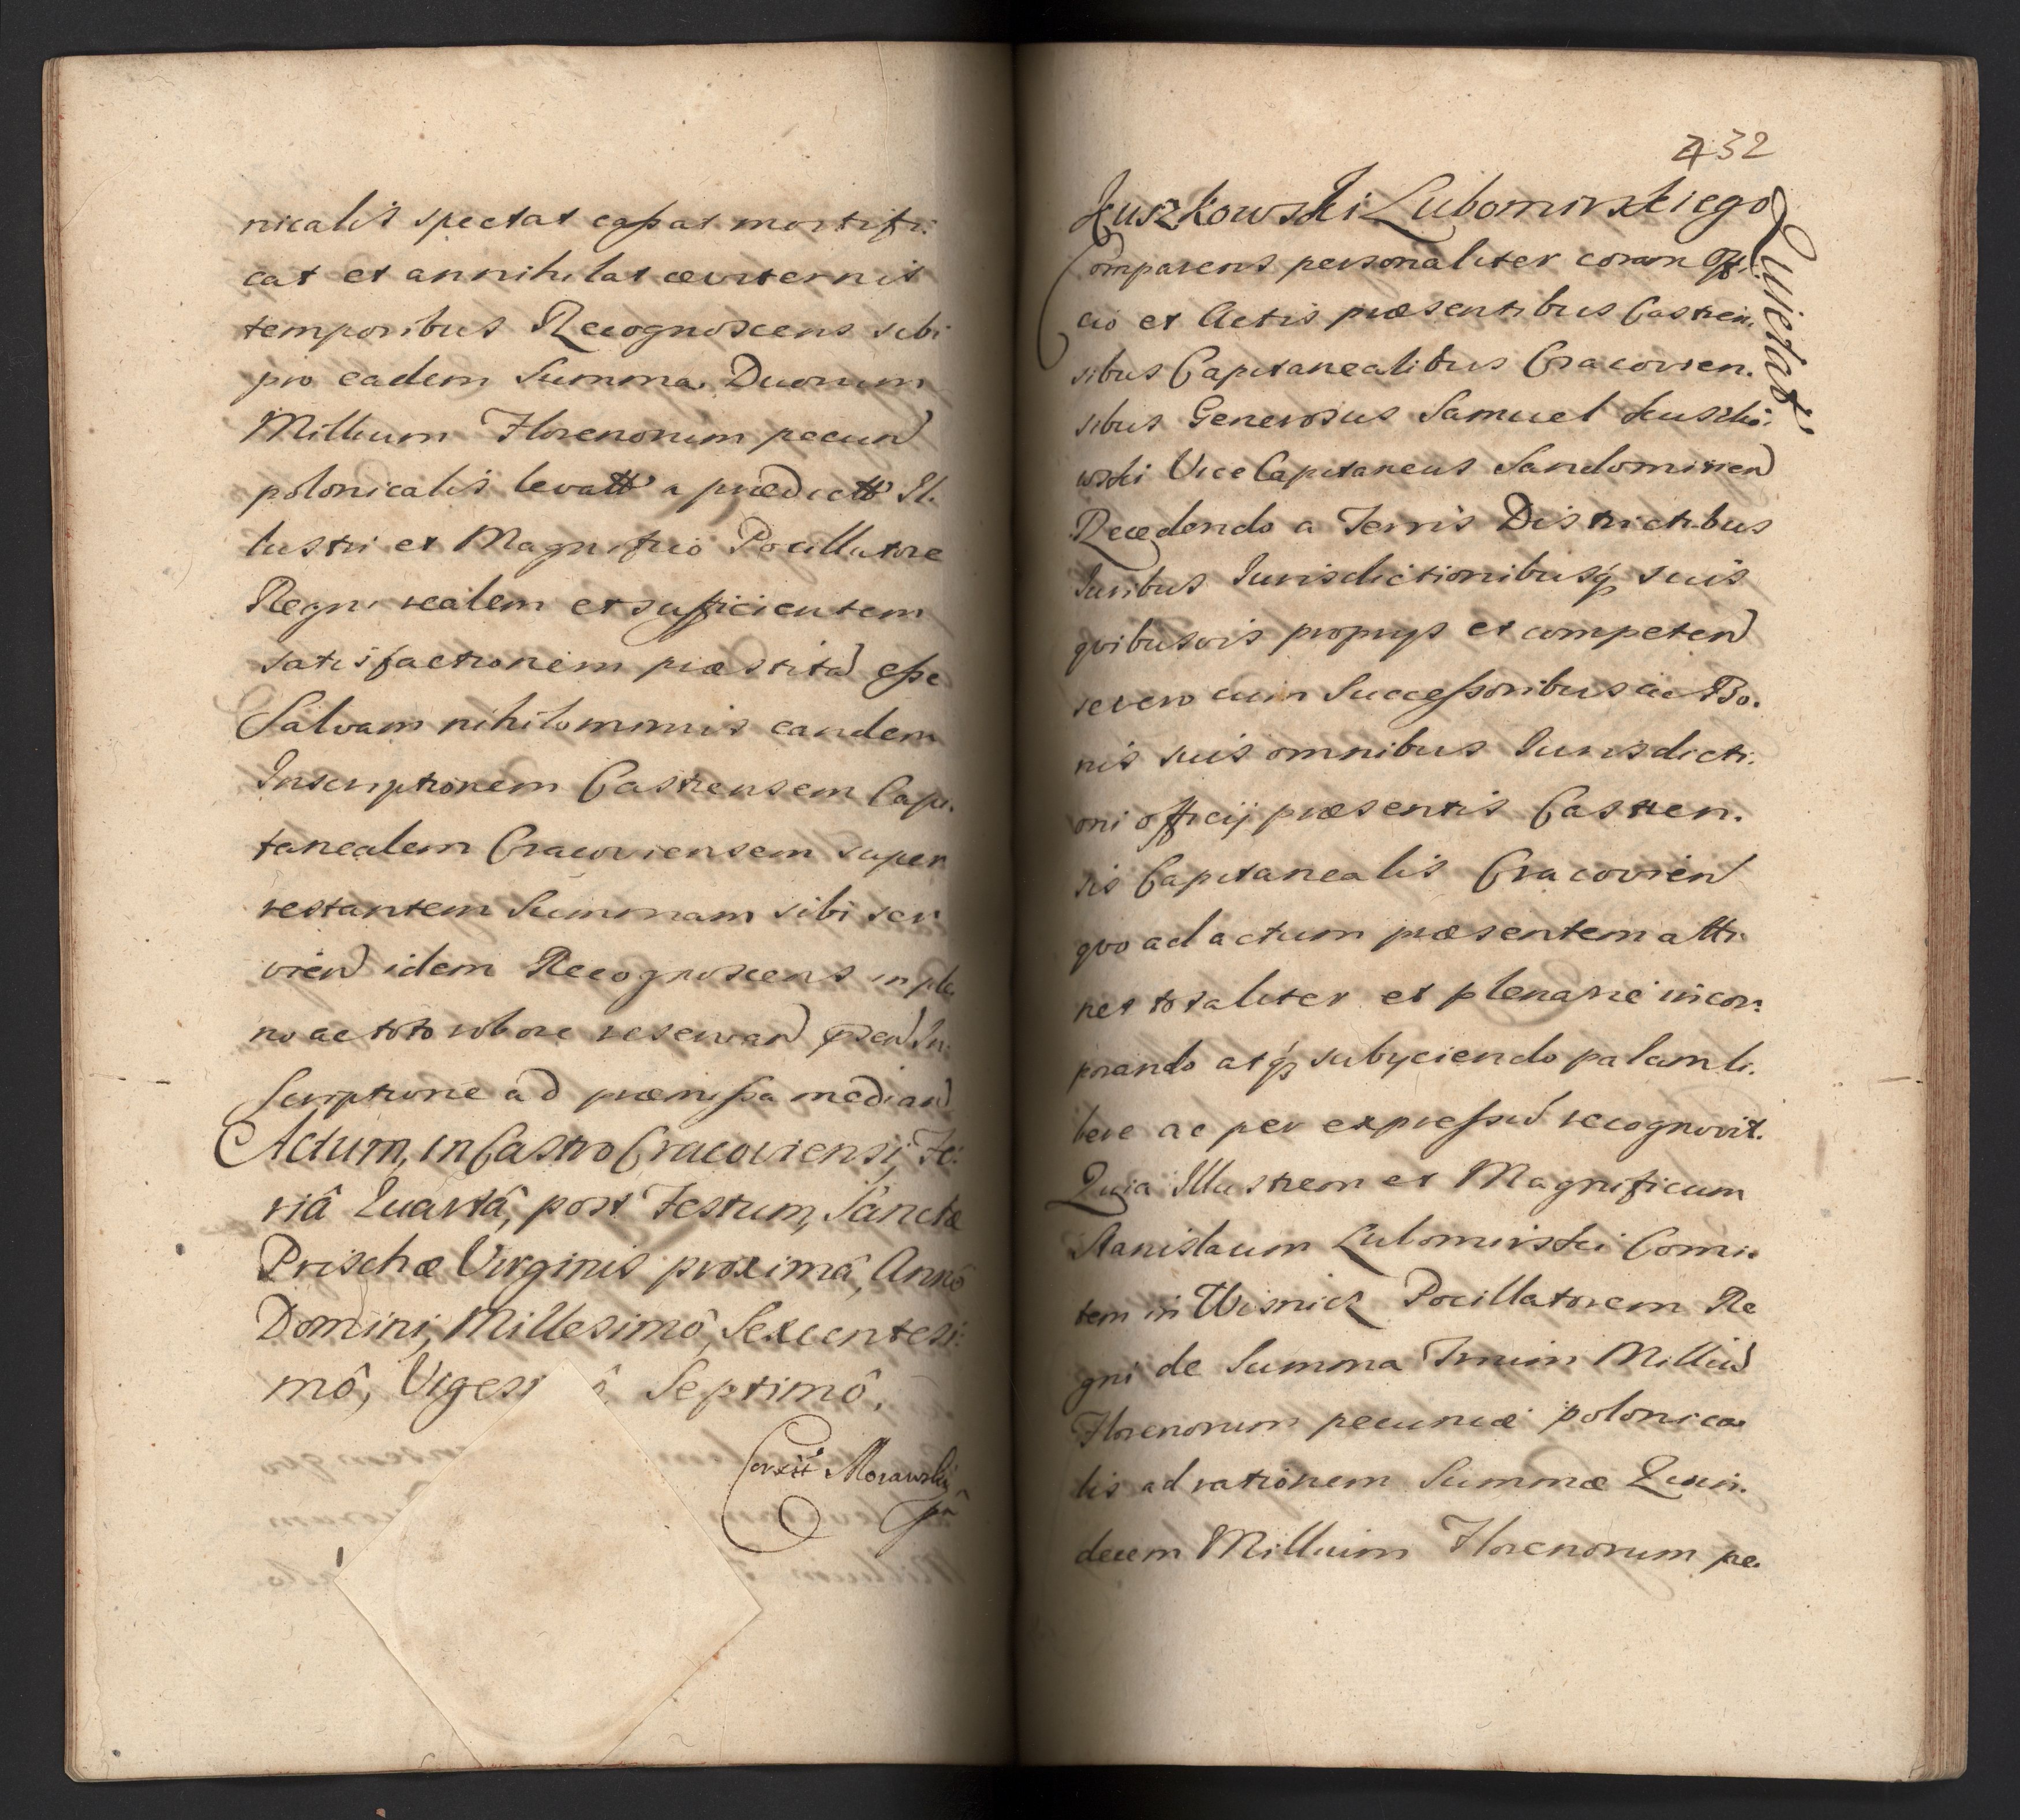 nicalis spectat caſsat mortifi:
cat et annihilat æviternis
temporibus Recognoscens sibi
pro eadem Summa Duorum
Millium Florenorum pecun
polonicalis levatt a prædictt Il.
lustri et Magnifico Pocillatore
Regni realem et sufficientem
satisfactionem præstita eſse
Salvam nihilominus eandem
Inscriptionem Castrensem Capi.
tanealem Cracoviensem super
restantem Summam sibi ser
vien idem Recognoscens in ple.
no ac toto robore reservan præsen In:
scriptione ad præmiſsa median
Actum, in Castro Cracoviensi, Fe:
riâ Quartâ, post Festum, Sanctæ
Prischæ Virginis proximâ, Annô
Domini, Millesimô, Sexcentesi:
mô, Vigesi ô Septimô,
Corexit Morawski
432
Kuszkowski Lubomirskiego
Quietat.
Comparens personaliter coram Offi.
cio et Actis præsentibus Castren.
sibus Capitanealibus Cracovien.
sibus Generosus Samuel Kuszko:
wski Vice Capitaneus Sandomirien
Recedendo a Terris Districtibus
Iuribus Iurisdictionibusq suis
qvibusvis proprys et competen
se vero cum Succeſsoribus ac Bo.
nis suis omnibus Iurisdicti.
oni officij præsentis Castren.
sis Capitanealis Cracovien
qvo ad actum præsentem atti
net totaliter et plenarie incor:
porando atq subyciendo palam li.
bere ac per expreſsu recognovit.
Quia Illustrem et Magnificum
Stanislaum Lubomirski Comi:
tem in Wisnicz Pocillatorem Re
gni de Summa Trium Milliu
Florenorum pecuniæ polonica
lis ad rationem Summæ Quin.
decem Millium Florenorum pe.